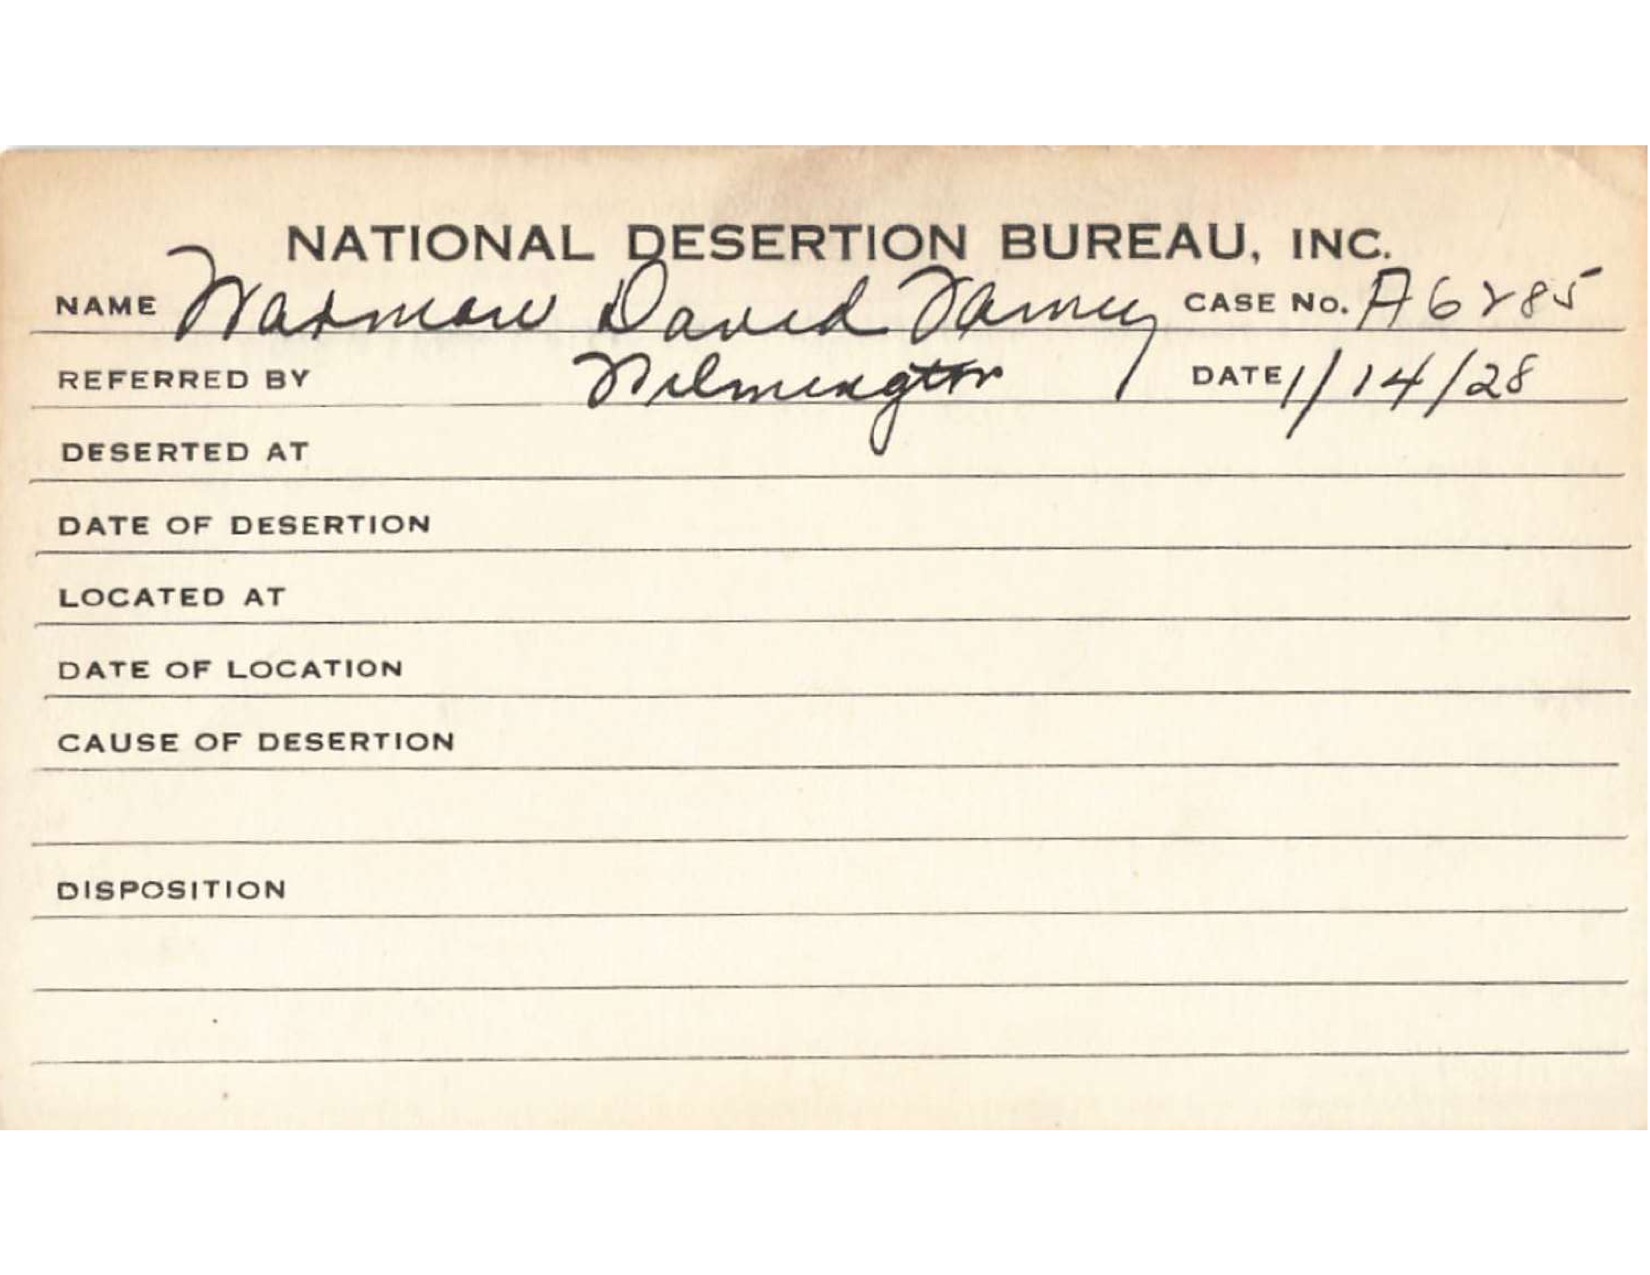 NATIONAL DESERTION BUREAU, INC.
NAME Waxman David Fanny CASE No. A6285
REFERRED BY Wilmington DATE 1/14/28
DESERTED AT
DATE OF DESERTION
LOCATED AT
DATE OF LOCATION
CAUSE OF DESERTION
DISPOSITION